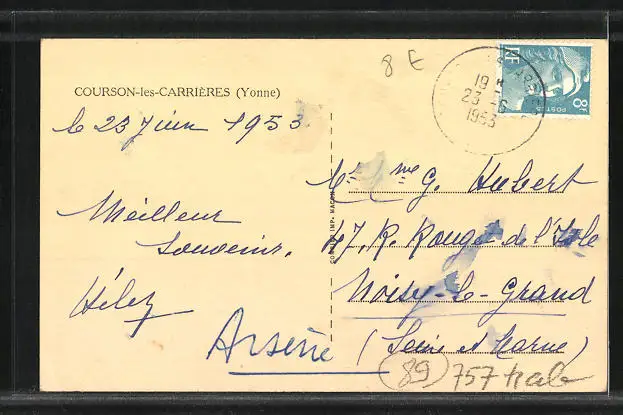 COURSON-les-CARRIÈRES (Yonne)
le 23 Juin 1953
Meilleur
Souvenir.
Arsène
8 E
19 H
23 - 6
1953
RF
8F
POSTES
Mr Mme G. Hubert
47, R. Rouget de l'Isle
Noisy-le-Grand
(Seine et Marne)
(89) 757